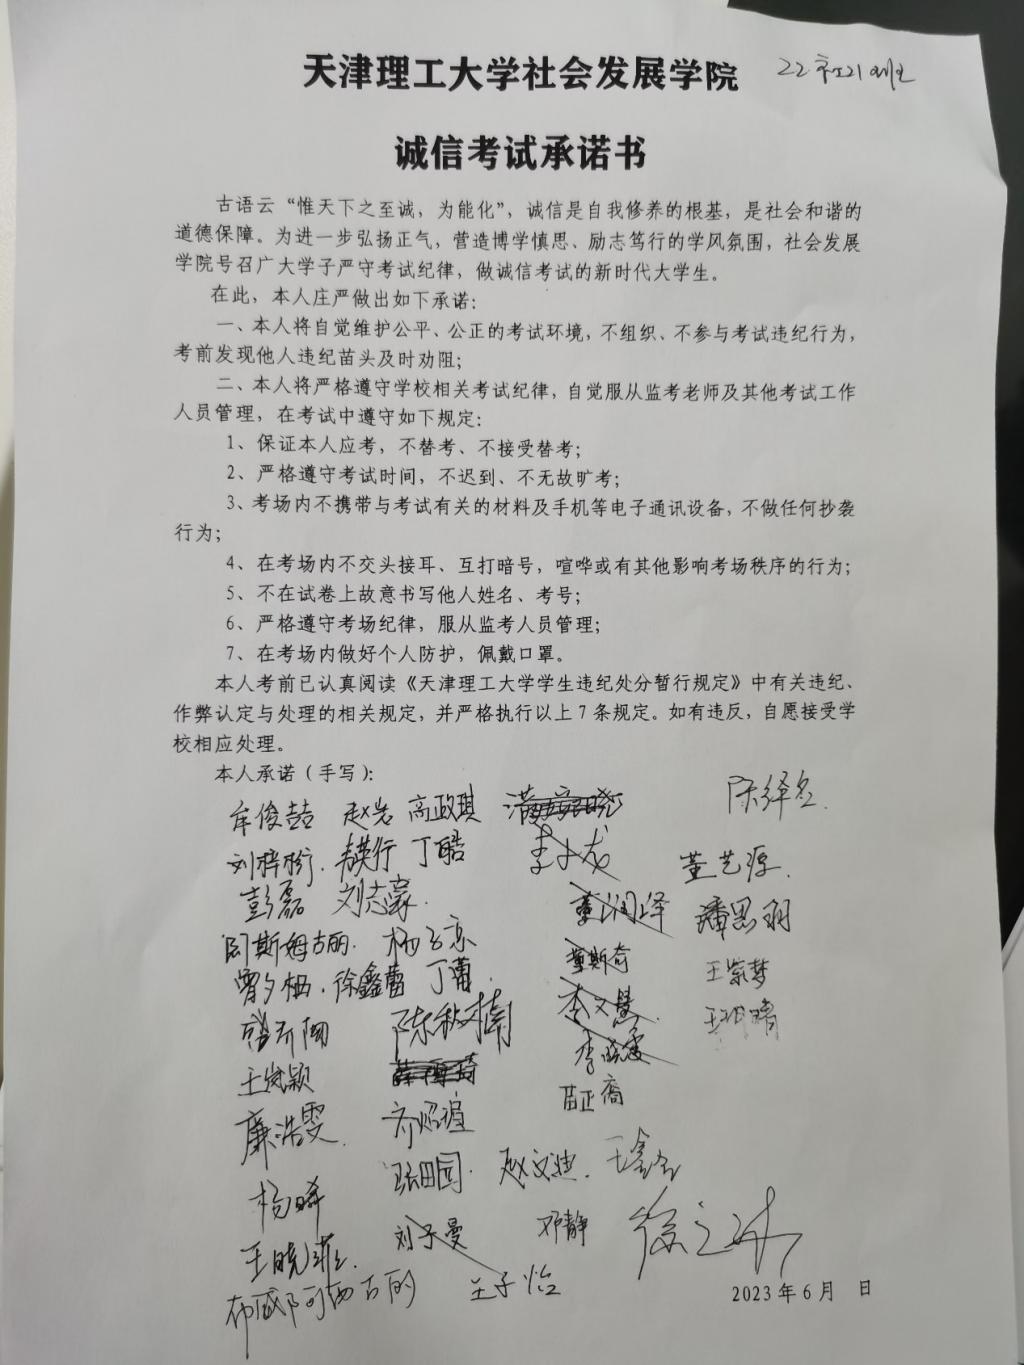 天津理工大学社会发展学院
诚信考试承诺书
古语云“惟天下之至诚，为能化”，诚信是自我修养的根基，是社会和谐的
道德保障。为进一步弘扬正气，营造博学慎思、励志笃行的学风氛围，社会发展
学院号召广大学子严守考试纪律，做诚信考试的新时代大学生。
在此，本人庄严做出如下承诺：
一、本人将自觉维护公平、公正的考试环境，不组织、不参与考试违纪行为，
考前发现他人违纪苗头及时劝阻；
二、本人将严格遵守学校相关考试纪律，自觉服从监考老师及其他考试工作
人员管理，在考试中遵守如下规定：
1、保证本人应考，不替考、不接受替考；
2、严格遵守考试时间，不迟到、不无故旷考；
3、考场内不携带与考试有关的材料及手机等电子通讯设备，不做任何抄袭
行为；
4、在考场内不交头接耳、互打暗号，喧哗或有其他影响考场秩序的行为；
5、不在试卷上故意书写他人姓名、考号；
6、严格遵守考场纪律，服从监考人员管理；
7、在考场内做好个人防护，佩戴口罩。
本人考前已认真阅读《天津理工大学学生违纪处分暂行规定》中有关违纪、
作弊认定与处理的相关规定，并严格执行以上7条规定。如有违反，自愿接受学
校相应处理。
本人承诺（手写）：
牟俊喆 赵岩 高政琪
丁皓 董艺源
彭磊 刘志豪 董润泽 潘思羽
阿斯姆古丽 杨子京
徐鑫蕾 董斯奇 王紫梦
陈秋楠 李文慧
王岚颖
廉浩雯 苗正裔
张田园 赵文迪 王鑫鑫
杨晞
王晓菲 刘子曼 邓静
王子怡
2023年6月 日